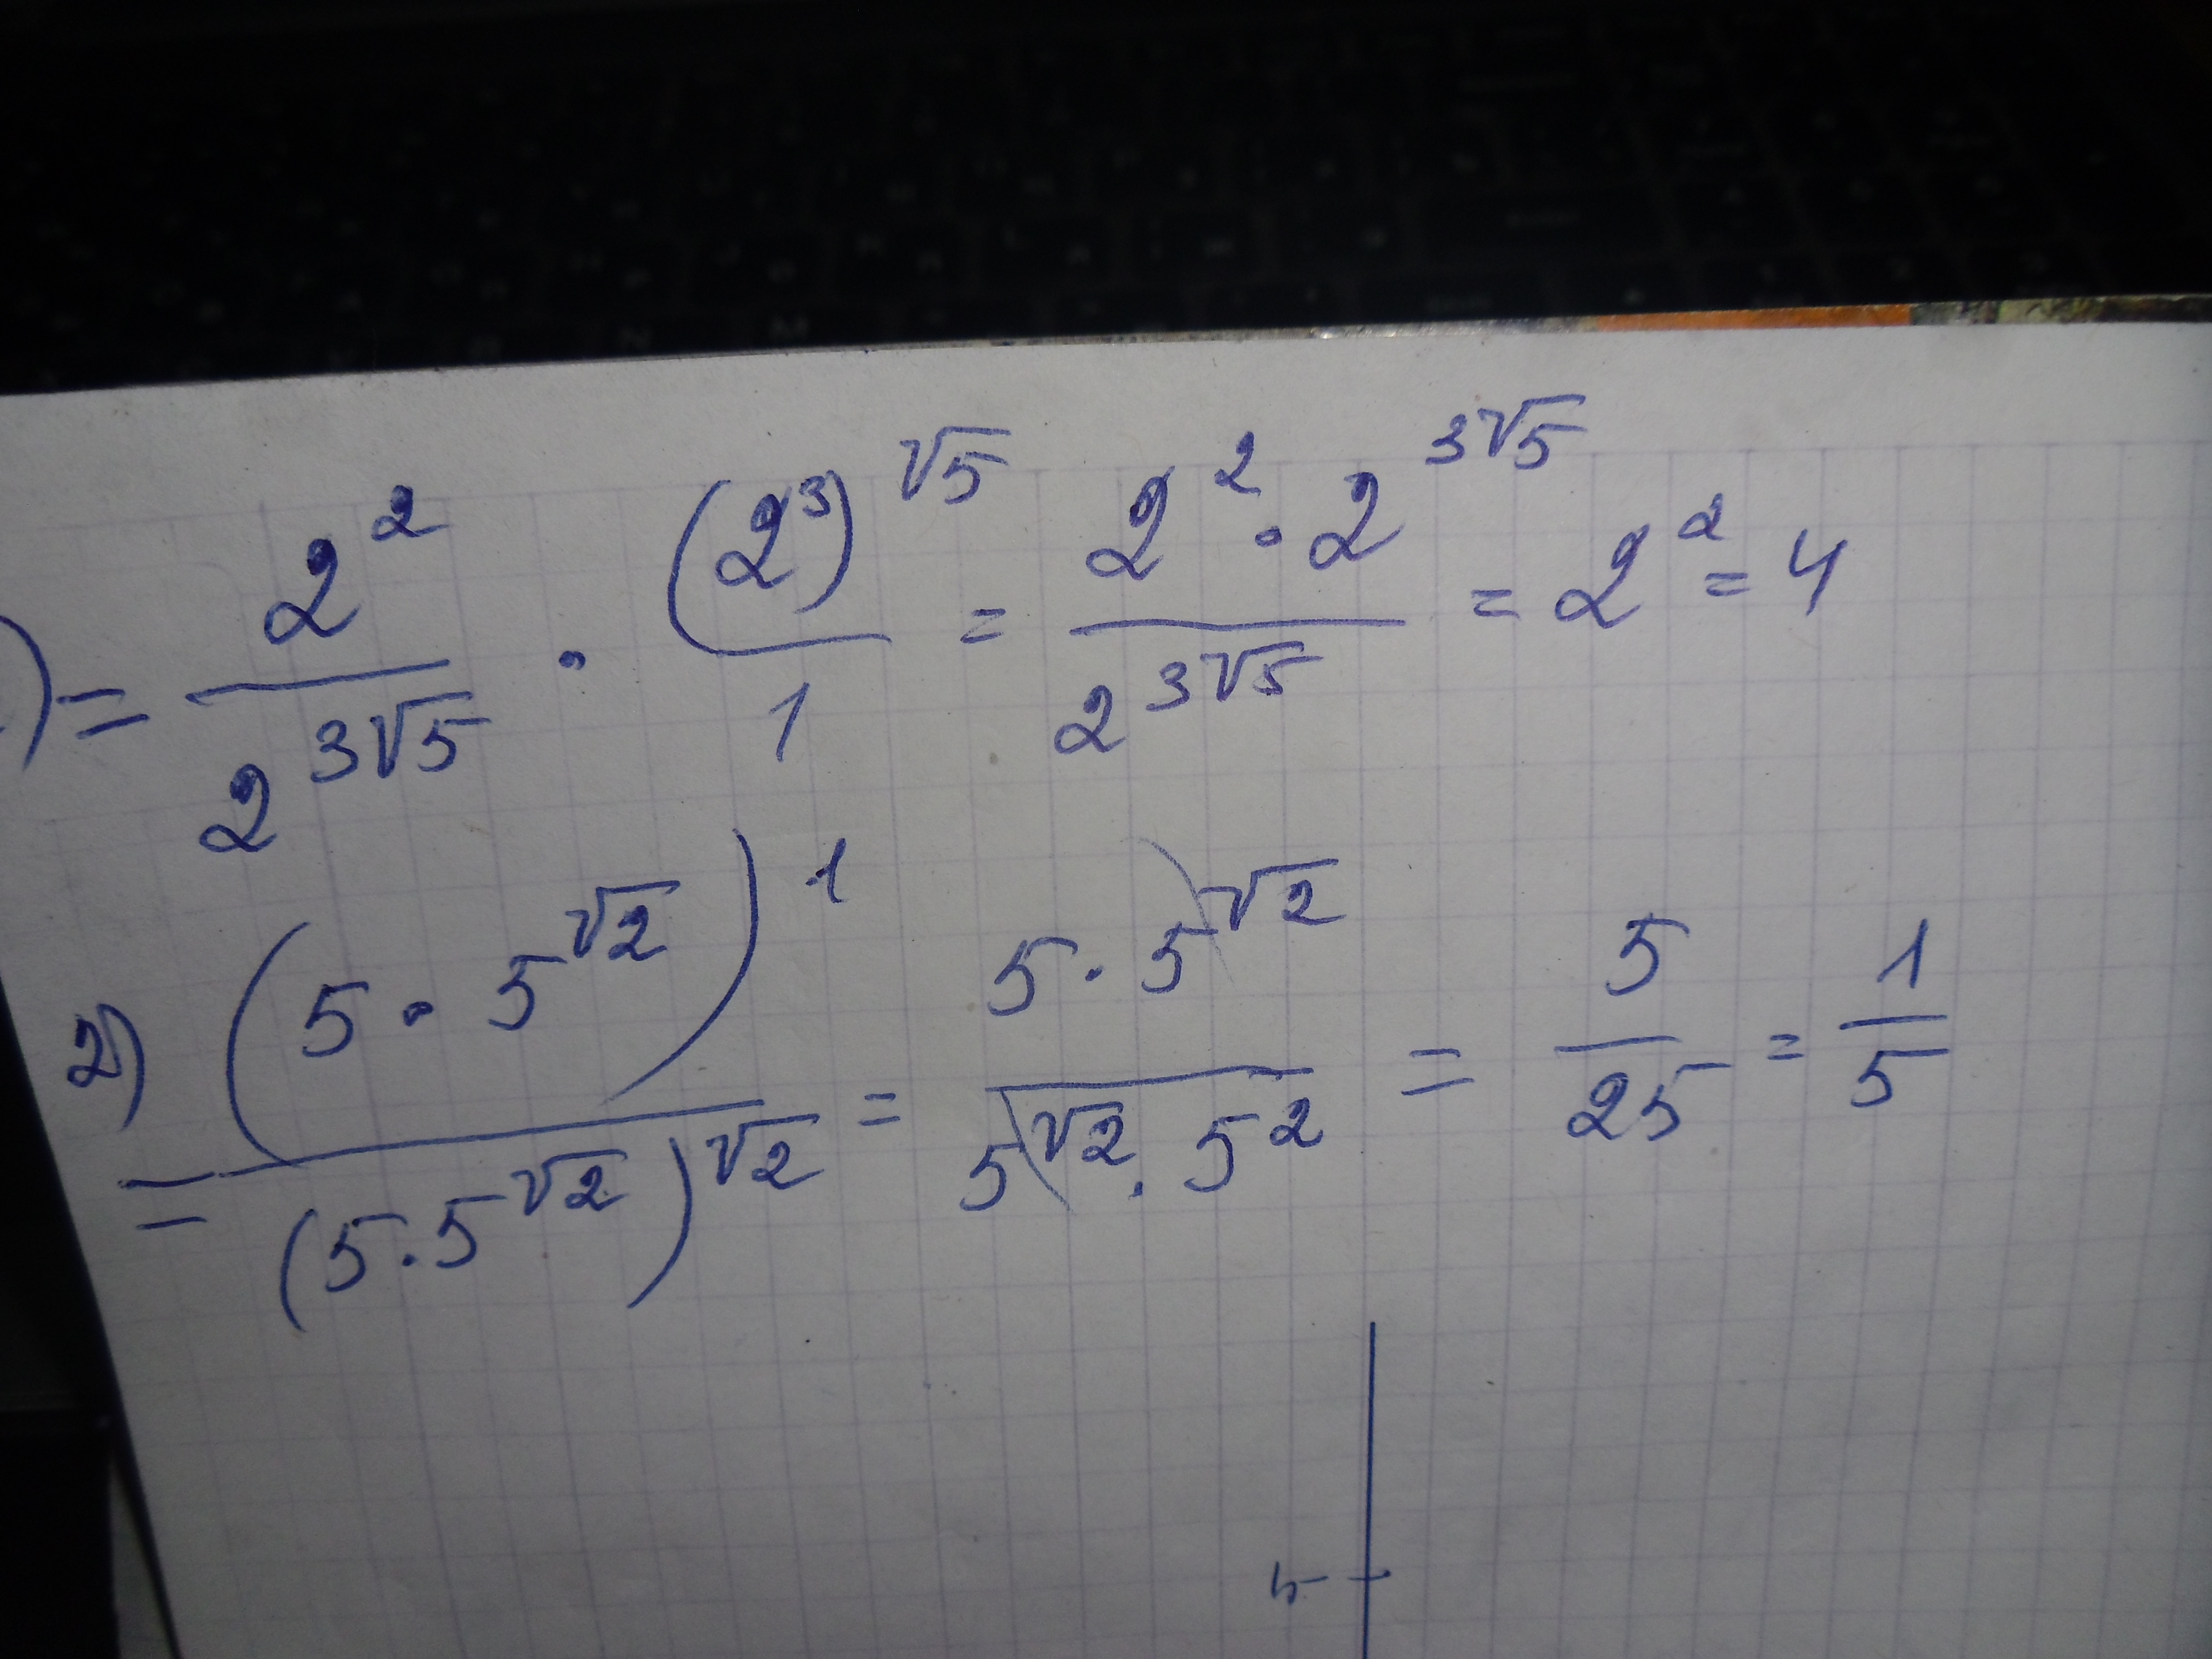 ) = 2^2 / 2^{3√5} · (2^3)^{√5} / 1 = 2^2 · 2^{3√5} / 2^{3√5} = 2^2 = 4
2) = (5 · 5^{√2})^1 / (5 · 5^{√2})^{√2} = 5 · 5^{√2} / 5^{√2} · 5^2 = 5 / 25 = 1 / 5